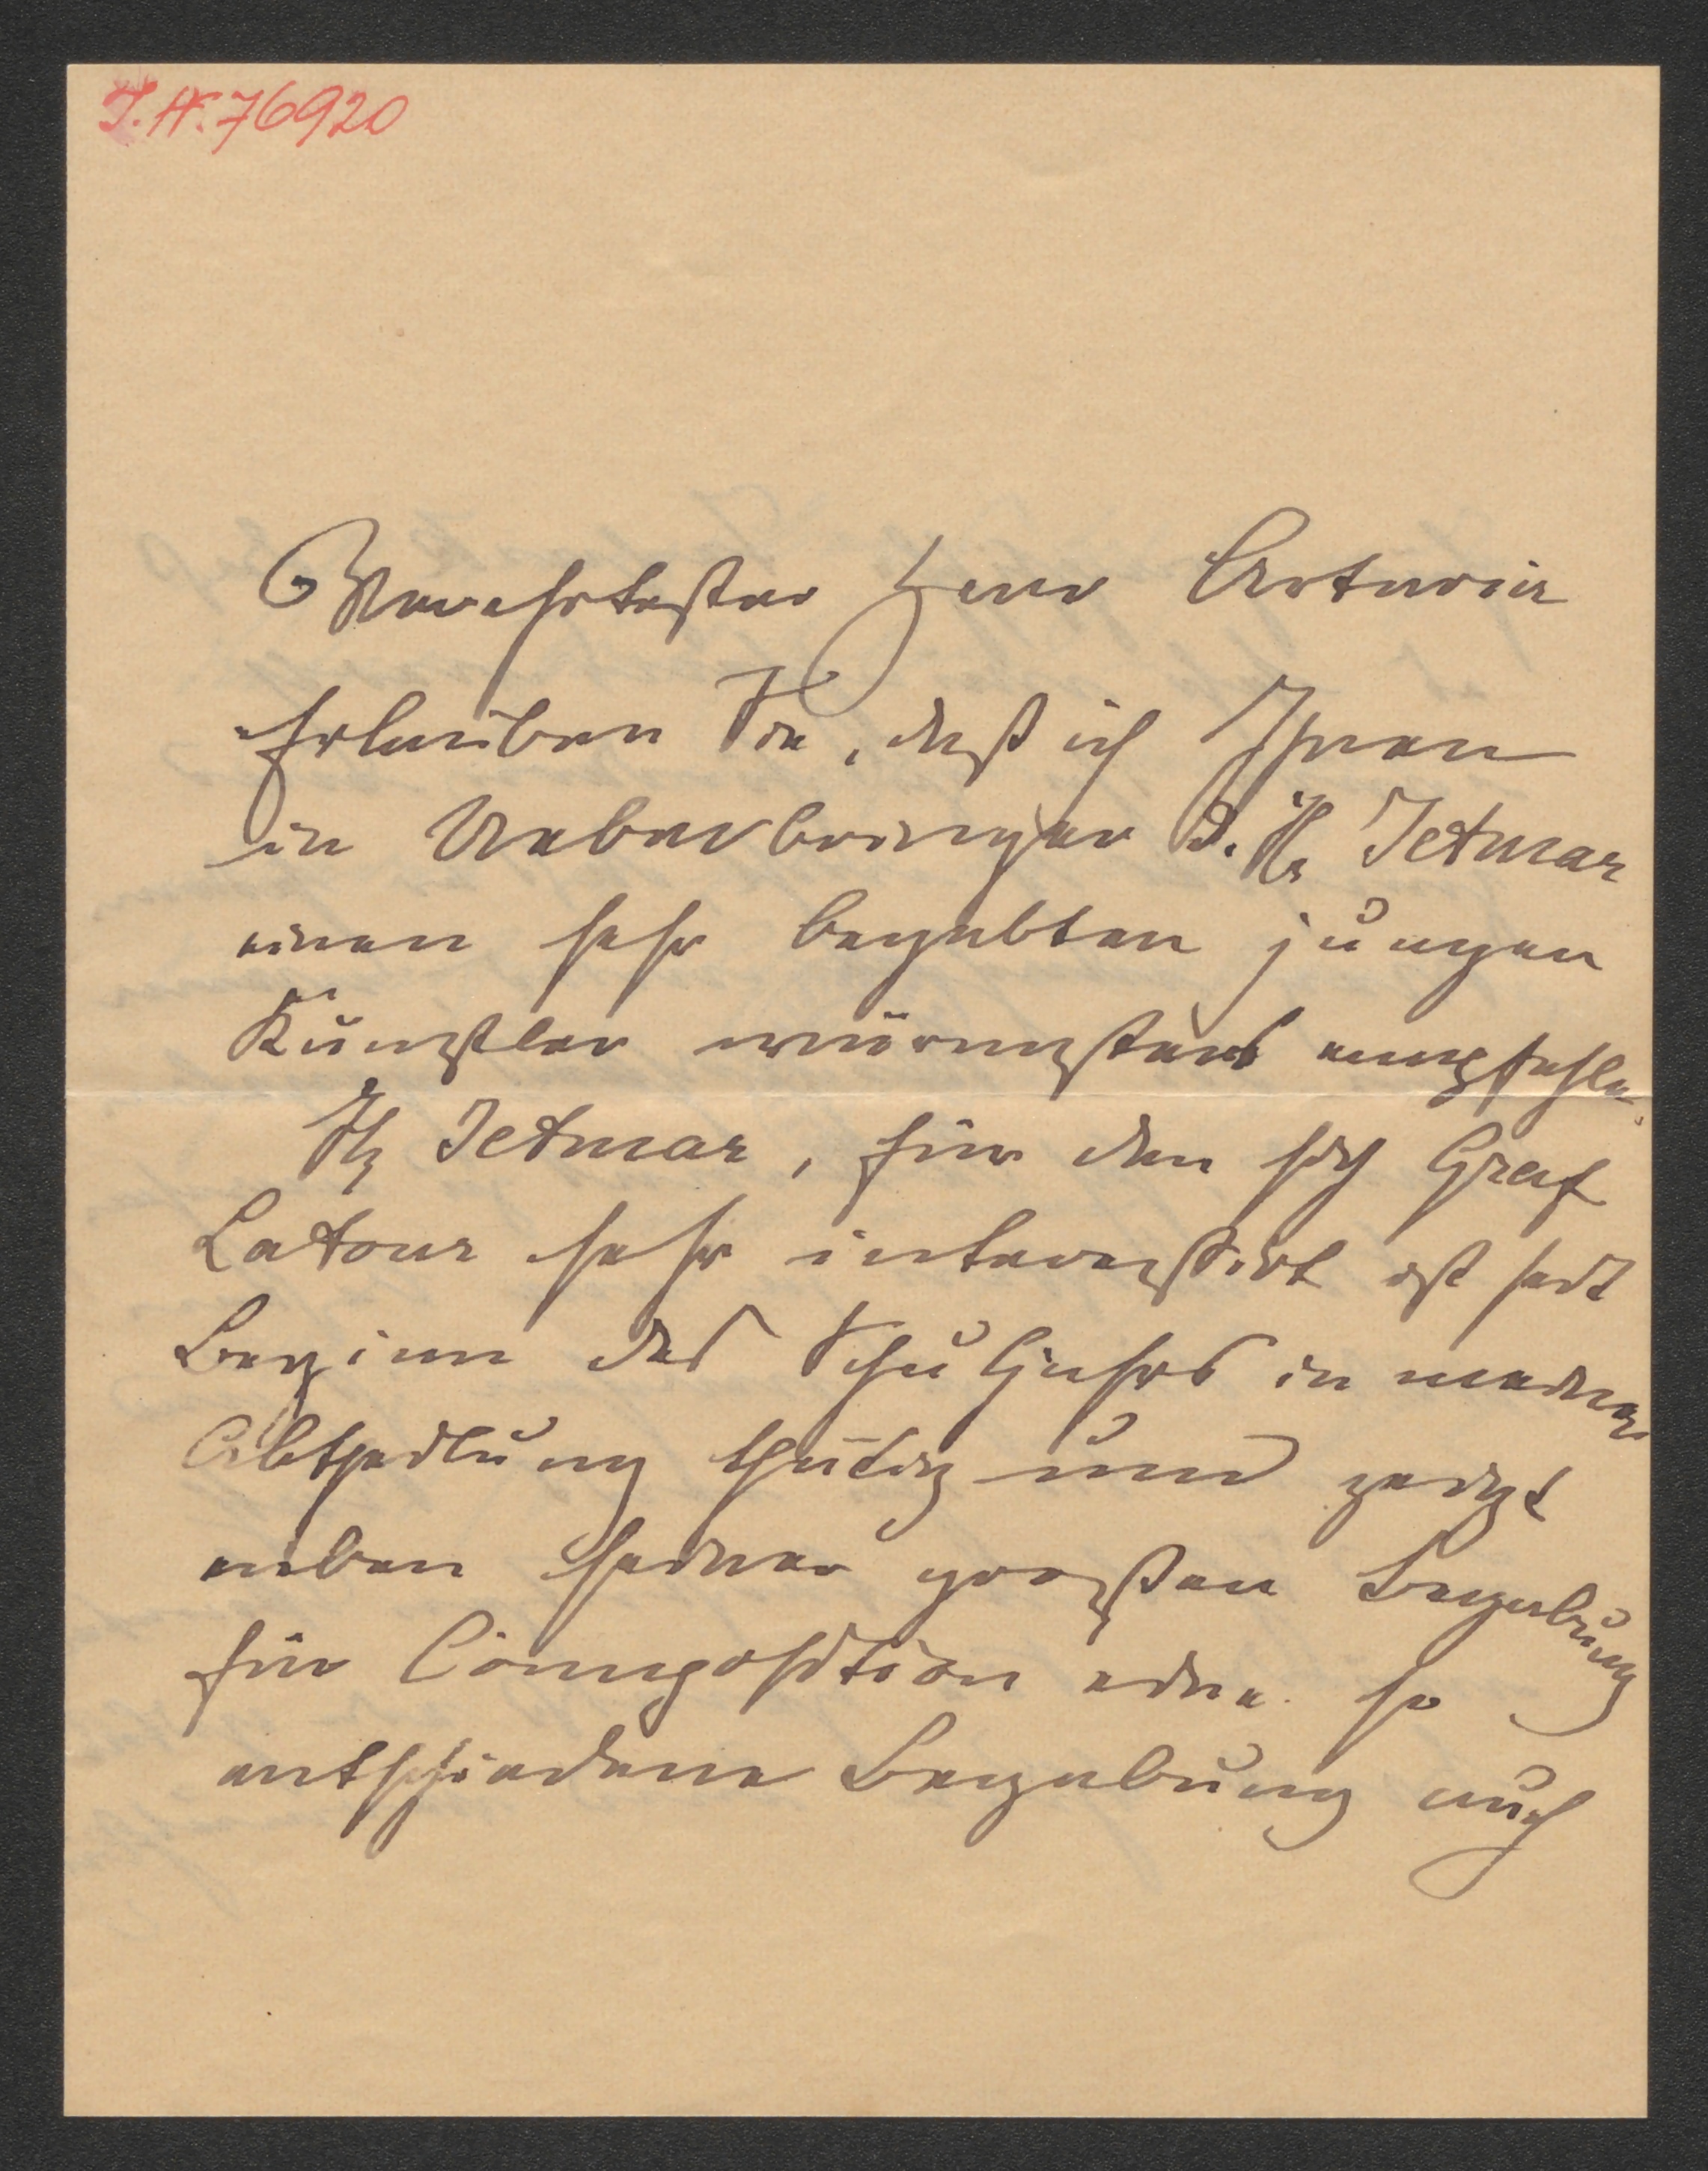 I.N. 76920
Verehrtester Herr Artaria
Erlauben Sie, daß ich Ihnen
in Ueberbringer d. H. Jetmar
einen sehr begabten jungen
Künstler wärmstens empfehle.
H. Jetmar, für den sich Graf
Latour sehr interessirt ist seit
Beginn des Schuljahrs in meiner
Abtheilung thätig und zeigt
neben seiner großen Begabung
für Composition eine so
entschiedene Begabung auch